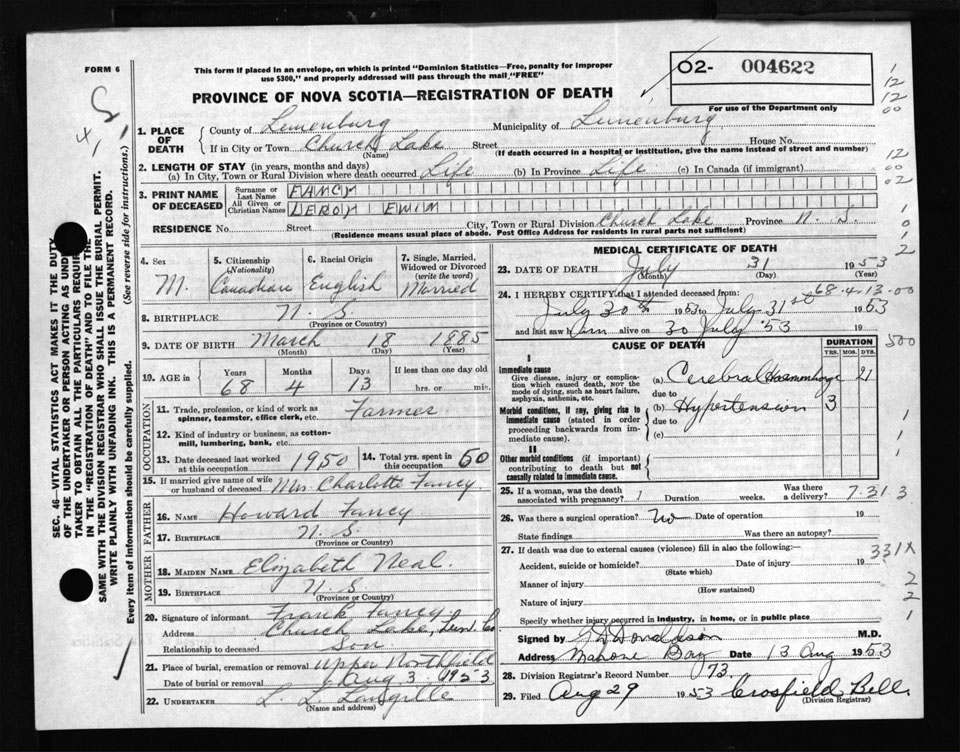 FORM 6
This form if placed in an envelope, on which is printed "Dominion Statistics—Free, penalty for improper
use $300," and properly addressed will pass through the mail "FREE"
O2- 004622
For use of the Department only
PROVINCE OF NOVA SCOTIA—REGISTRATION OF DEATH
1. PLACE OF DEATH
County of Lunenburg Municipality of Lunenburg
If in City or Town Church Lake Street House No.
(Name) (If death occurred in a hospital or institution, give the name instead of street and number)
2. LENGTH OF STAY (in years, months and days)
(a) In City, Town or Rural Division where death occurred Life (b) In Province Life (c) In Canada (if immigrant)
3. PRINT NAME OF DECEASED
Surname or Last Name FANCY
All Given or Christian Names LEROY EWIM
RESIDENCE No. Street City, Town or Rural Division Church Lake Province N. S.
(Residence means usual place of abode. Post Office Address for residents in rural parts not sufficient)
4. Sex M.
5. Citizenship (Nationality) Canadian
6. Racial Origin English
7. Single, Married, Widowed or Divorced (write the word) Married
8. BIRTHPLACE N. S.
(Province or Country)
9. DATE OF BIRTH March 18 1885
(Month) (Day) (Year)
10. AGE in Years Months Days If less than one day old
68 4 13 hrs. or min.
OCCUPATION
11. Trade, profession, or kind of work as spinner, teamster, office clerk, etc. Farmer
12. Kind of industry or business, as cotton-mill, lumbering, bank, etc.
13. Date deceased last worked at this occupation 1950
14. Total yrs. spent in this occupation 60
15. If married give name of wife or husband of deceased Mrs. Charlotte Fancy.
FATHER
16. NAME Howard Fancy
17. BIRTHPLACE N. S.
(Province or Country)
MOTHER
18. MAIDEN NAME Elizabeth Neal.
19. BIRTHPLACE N. S.
(Province or Country)
20. Signature of informant Frank Fancy.
Address Church Lake, Lun. Co
Relationship to deceased Son
21. Place of burial, cremation or removal Upper Northfield
Date of burial or removal Aug 3 1953
22. UNDERTAKER L. L. Langille
(Name and address)
MEDICAL CERTIFICATE OF DEATH
23. DATE OF DEATH July 31 1953
(Month) (Day) (Year)
68-4-13-00
24. I HEREBY CERTIFY that I attended deceased from:
July 30th 1953 to July 31st 1953
and last saw him alive on 30 July '53 19
CAUSE OF DEATH
DURATION
YRS. MOS. DYS.
I
Immediate cause
Give disease, injury or complication which caused death, NOT the mode of dying, such as heart failure, asphyxia, asthenia, etc.
(a) Cerebral Haemorrhage 21
due to
Morbid conditions, if any, giving rise to immediate cause (stated in order proceeding backwards from immediate cause).
(b) Hypertension 3
due to
(c)
II
Other morbid conditions (if important) contributing to death but not causally related to immediate cause.
25. If a woman, was the death associated with pregnancy? Duration weeks. Was there a delivery? 7.31 3
26. Was there a surgical operation? No Date of operation 19
State findings Was there an autopsy?
27. If death was due to external causes (violence) fill in also the following:— 331X
Accident, suicide or homicide? Date of injury 19
(State which)
Manner of injury
(How sustained)
Nature of injury
Specify whether injury occurred in industry, in home, or in public place
Signed by G D Donaldson M.D.
Address Mahone Bay Date 13 Aug 1953
28. Division Registrar's Record Number 73.
29. Filed Aug 29 1953 Crosfield Bell.
(Division Registrar)
SEC. 46—VITAL STATISTICS ACT MAKES IT THE DUTY
OF THE UNDERTAKER OR PERSON ACTING AS
TAKER TO OBTAIN ALL THE PARTICULARS
IN THE "REGISTRATION OF DEATH" AND TO FILE THE
SAME WITH THE DIVISION REGISTRAR WHO SHALL ISSUE THE BURIAL PERMIT.
WRITE PLAINLY WITH UNFADING INK. THIS IS A PERMANENT RECORD.
Every item of information should be carefully supplied. (See reverse side for instructions.)
1
12
12
00
12
00
02
1
0
1
2
500
1
1
1
2
2
1